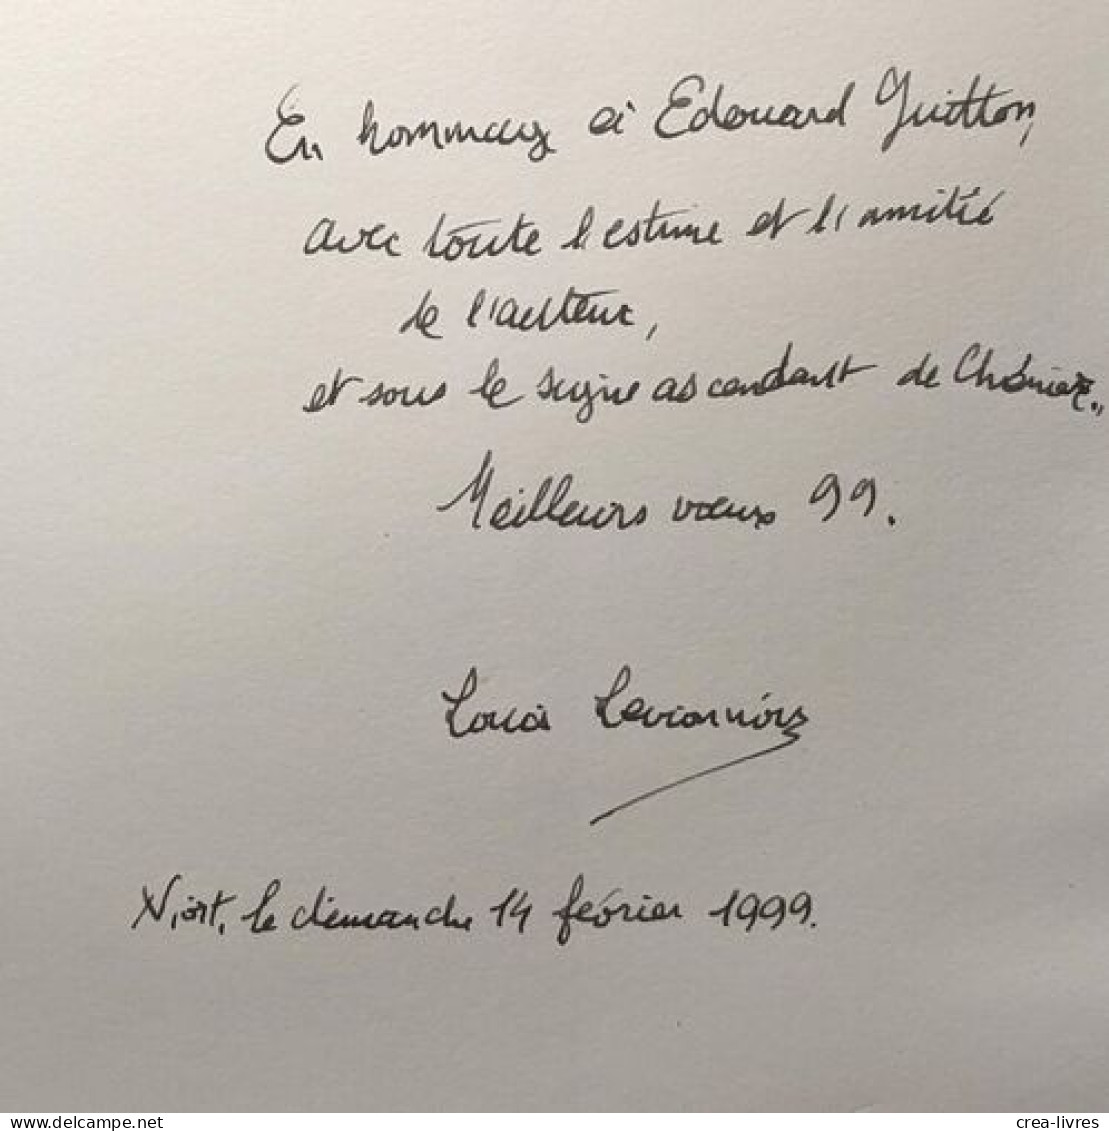 En hommage à Edouard Guitton,
avec toute l'estime et l'amitié
de l'auteur,
et sous le signe ascendant de Chénier..
Meilleurs vœux 99.
Louis
Niort, le dimanche 14 février 1999.
www.delcampe.net
crea-livres